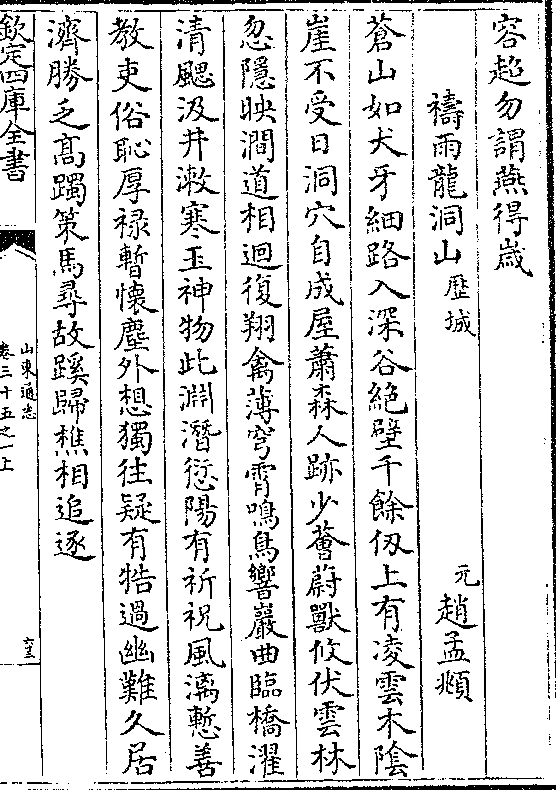 容超勿謂燕得歳
禱雨龍洞山 歷城 元 趙孟頫
蒼山如犬牙細路入深谷絶壁千餘仭上有凌雲木陰
崖不受日洞穴自成屋蕭森人跡少薈蔚獸攸伏雲林
忽隱映澗道相迴復翔禽薄穹霄鳴鳥響巖曲臨橋濯
清颸汲井漱寒玉神物此淵潛愆陽有祈祝風漓慙善
教吏俗恥厚禄暫懷塵外想獨往疑有牿過幽難久居
濟勝乏髙躅策馬尋故蹊歸樵相追逐
欽定四庫全書
山東通志
卷三十五之一上